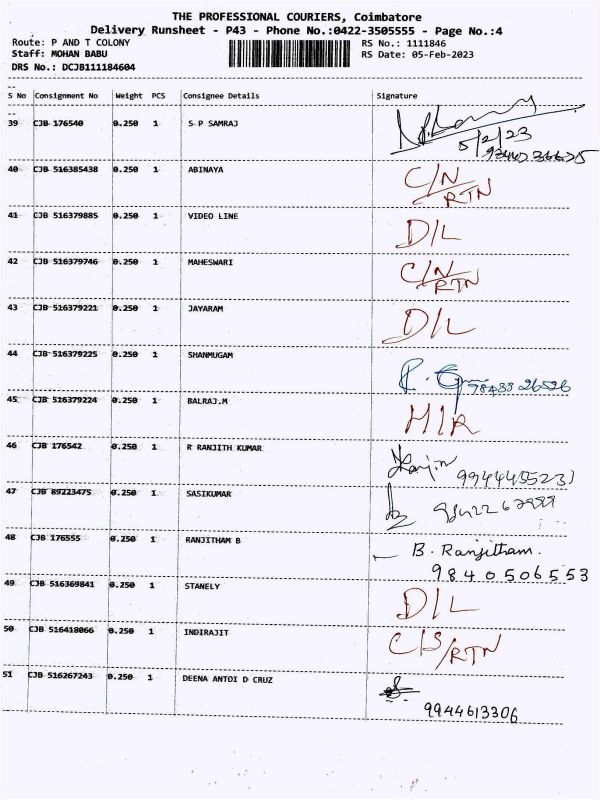 THE PROFESSIONAL COURIERS, Coimbatore
Delivery Runsheet - P43 - Phone No.:0422-3505555 - Page No.:4
Route: P AND T COLONY RS No.: 1111846
Staff: MOHAN BABU RS Date: 05-Feb-2023
DRS No.: DCJB111184604
S No Consignment No Weight PCS Consignee Details Signature
39 CJB 176540 0.250 1 S P SAMRAJ
5/2/23
40 CJB 516385438 0.250 1 ABINAYA C/N
RTN
41 CJB 516379885 0.250 1 VIDEO LINE D/L
42 CJB 516379746 0.250 1 MAHESWARI C/N
RTN
43 CJB 516379221 0.250 1 JAYARAM D/L
44 CJB 516379225 0.250 1 SHANMUGAM
45 CJB 516379224 0.250 1 BALRAJ.M H/R
46 CJB 176542 0.250 1 R RANJITH KUMAR
9944455231
47 CJB 89223475 0.250 1 SASIKUMAR
48 CJB 176555 0.250 1 RANJITHAM B B. Ranjitham.
9840506553
49 CJB 516369841 0.250 1 STANELY D/L
50 CJB 516418066 0.250 1 INDIRAJIT C/S/RTN
51 CJB 516267243 0.250 1 DEENA ANTOI D CRUZ
9944613306